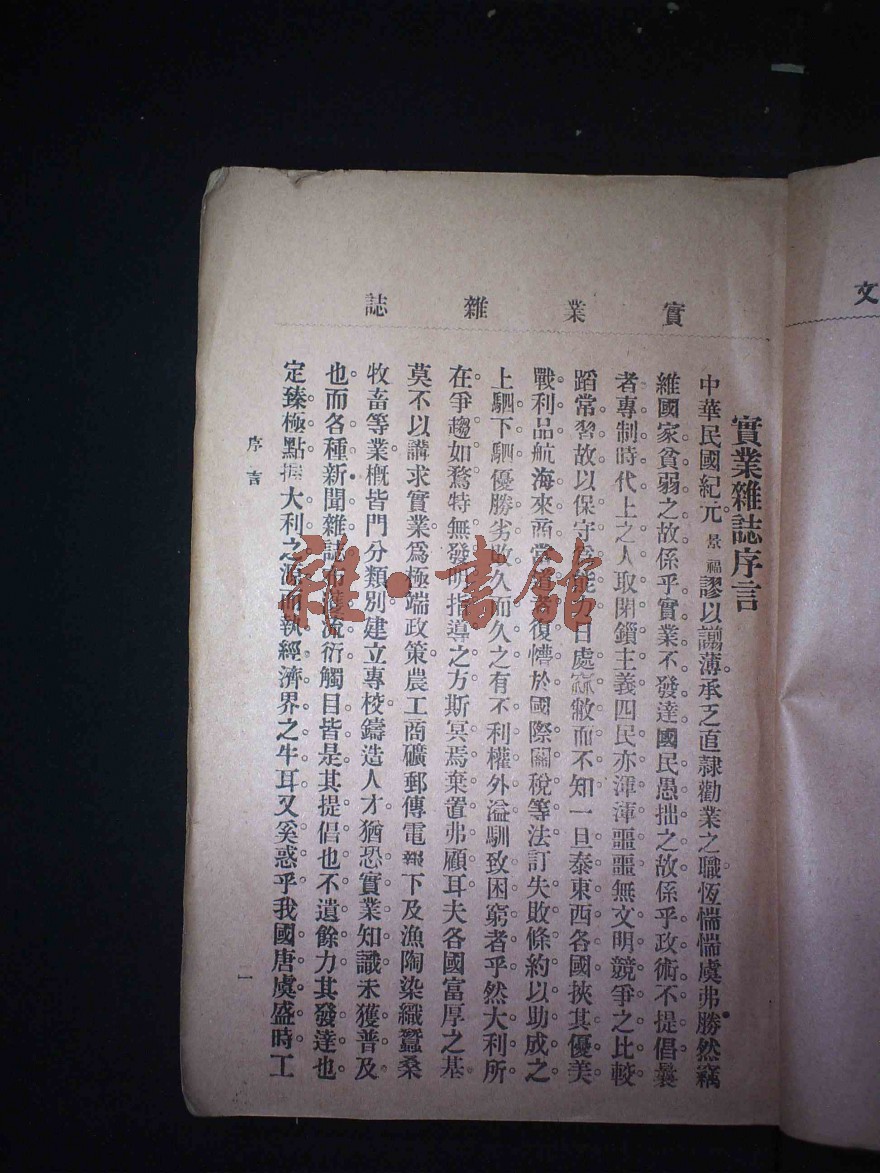 實業雜誌
實業雜誌序言
中華民國紀元景福謬以譾薄承乏直隸勸業之職恆惴惴虞弗勝然竊
維國家貧弱之故係乎實業不發達國民愚拙之故係乎政術不提倡曩
者專制時代上之人取閉鎖主義四民亦渾渾噩噩無文明競爭之比較
蹈常習故以保守為能力日處窳敝而不知一旦泰東西各國挾其優美
戰利品航海來商當道者復懵於國際關稅等法訂失敗條約以助成之
上駟下駟優勝劣敗久而久之有不利權外溢馴致困窮者乎然大利所
在爭趨如鶩特無發明指導之方斯冥焉棄置弗顧耳夫各國富厚之基
莫不以講求實業爲極端政策農工商礦郵傳電報下及漁陶染織蠶桑
牧畜等業槪皆門分類別建立專校鑄造人才猶恐實業知識未獲普及
也而各種新聞雜誌流衍觸目皆是其提倡也不遺餘力其發達也
定臻極點握大利之源而執經濟界之牛耳又奚惑乎我國唐虞盛時工
序言
二
文
雜·書館